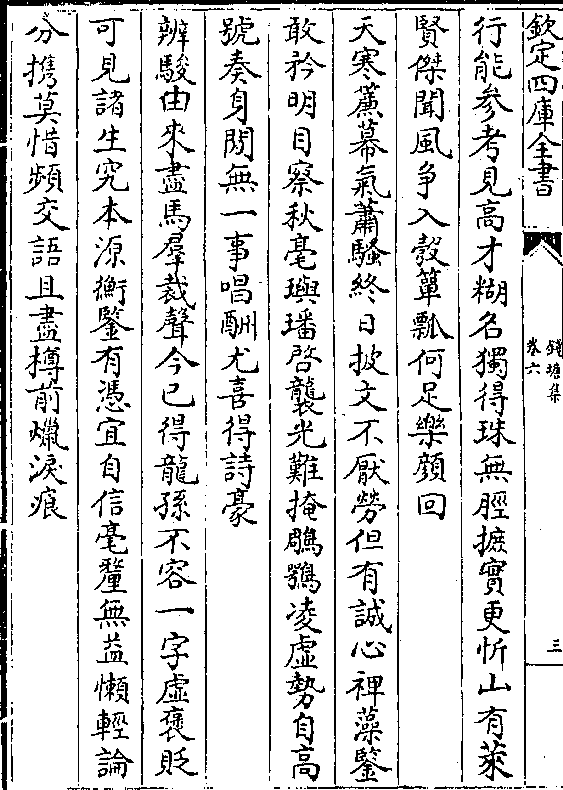 欽定四庫全書
錢塘集
卷六
三
行能参考見高才糊名獨得珠無脛摭實更忻山有萊
賢傑聞風争入彀簞瓢何足樂顔回
天寒簾幕氣蕭騷終日披文不厭勞但有誠心裨藻鍳
敢矜明目察秋毫璵璠啓襲光難掩鵰鶚凌虚勢自高
號奏身閒無一事唱酬尤喜得詩豪
辨駿由來盡馬羣裁聲今已得龍孫不容一字虚褒貶
可見諸生究本源衡鍳有憑宜自信毫釐無益懶輕論
分携莫惜頻交語且盡樽前爥淚痕